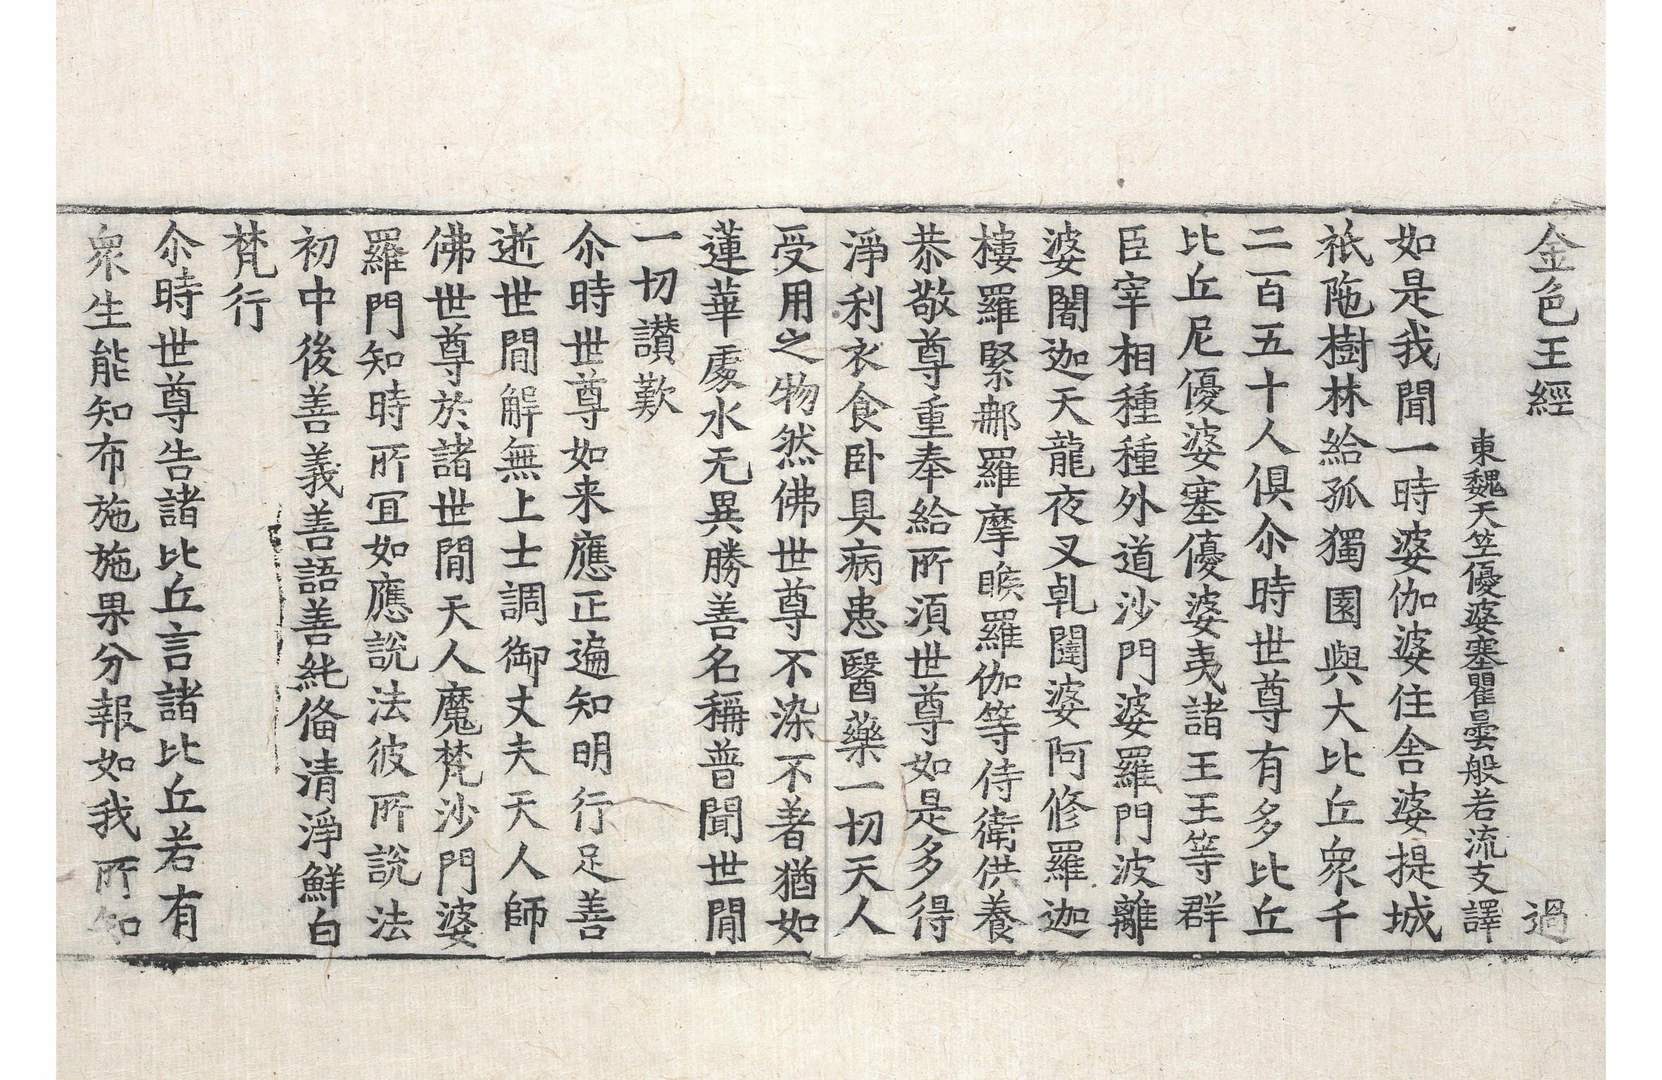 金色王經 過
東魏天竺優婆塞瞿曇般若流支譯
如是我聞一時婆伽婆住舍婆提城
祇陁樹林給孤獨園與大比丘衆千
二百五十人俱尒時世尊有多比丘
比丘尼優婆塞優婆夷諸王王等群
臣宰相種種外道沙門婆羅門波離
婆闍迦天龍夜叉乹闥婆阿修羅迦
樓羅緊那羅摩睺羅伽等侍衛供養
恭敬尊重奉給所湏世尊如是多得
淨利衣食卧具病患醫藥一切天人
受用之物然佛世尊不染不著猶如
蓮華處水无異勝善名稱普聞世間
一切讃歎
尒時世尊如来應正遍知明行足善
逝世間解無上士調御丈夫天人師
佛世尊於諸世間天人魔梵沙門婆
羅門知時所冝如應說法彼所說法
初中後善義善語善純俻清淨鮮白
梵行
尒時世尊告諸比丘言諸比丘若有
衆生能知布施施果分報如我所知